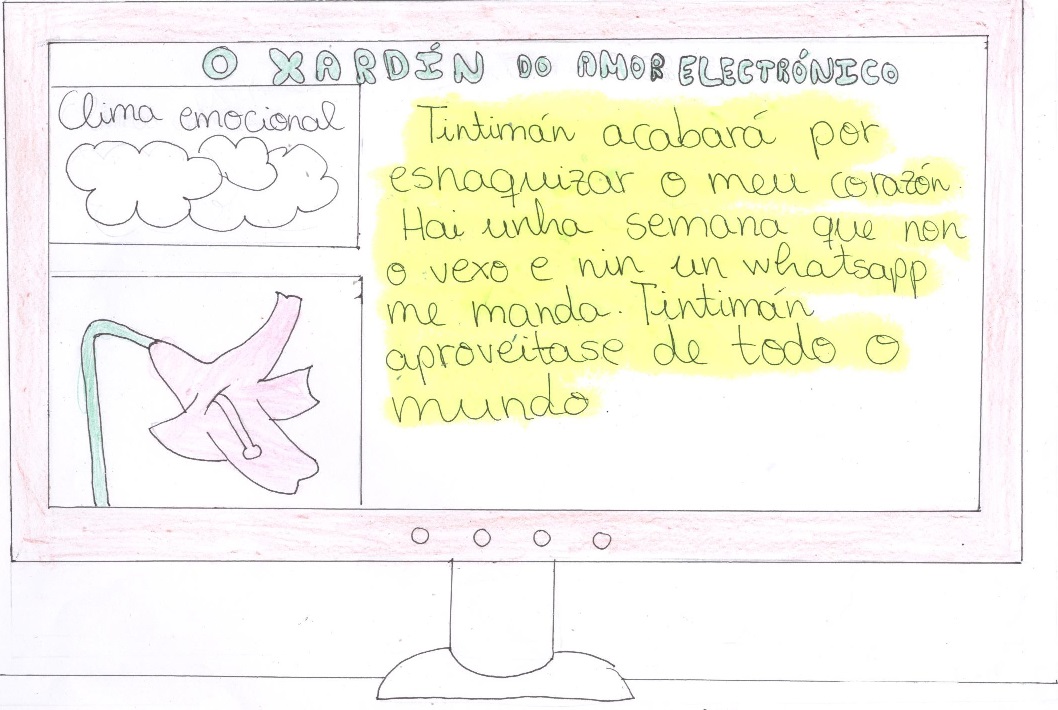 O XARDÍN DO AMOR ELECTRÓNICO
Clima emocional
Tintimán acabará por
esnaquizar o meu corazón.
Hai unha semana que non
o vexo e nin un whatsapp
me manda. Tintimán
aproveitase de todo o
mundo.